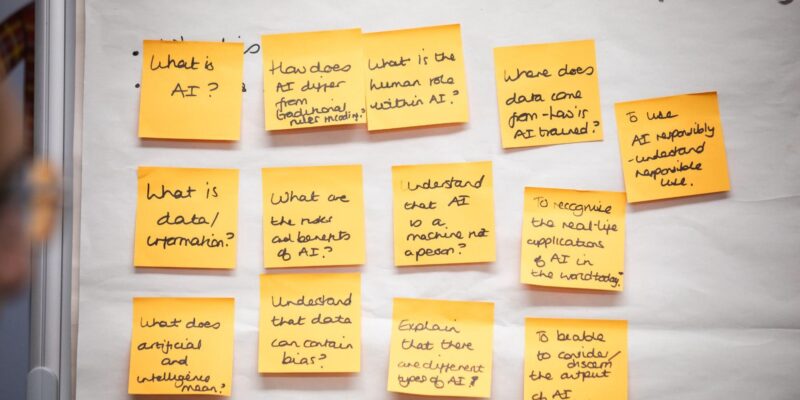 What is
AI?
How does
AI differ
from
traditional
rules incoding?
What is the
human role
within AI?
Where does
data come
from - how is
AI trained?
To use
AI responsibly
- understand
responsible
use.
What is
data/
information?
What are
the risks
and benefits
of AI?
Understand
that AI
is a
machine not
a person?
To recognise
the real-life
applications
of AI in
the world today.
What does
artificial
and
intelligence
mean?
Understand
that data
can contain
bias?
Explain
that there
are different
types of AI?
To be able
to consider/
discern
the output
of AI